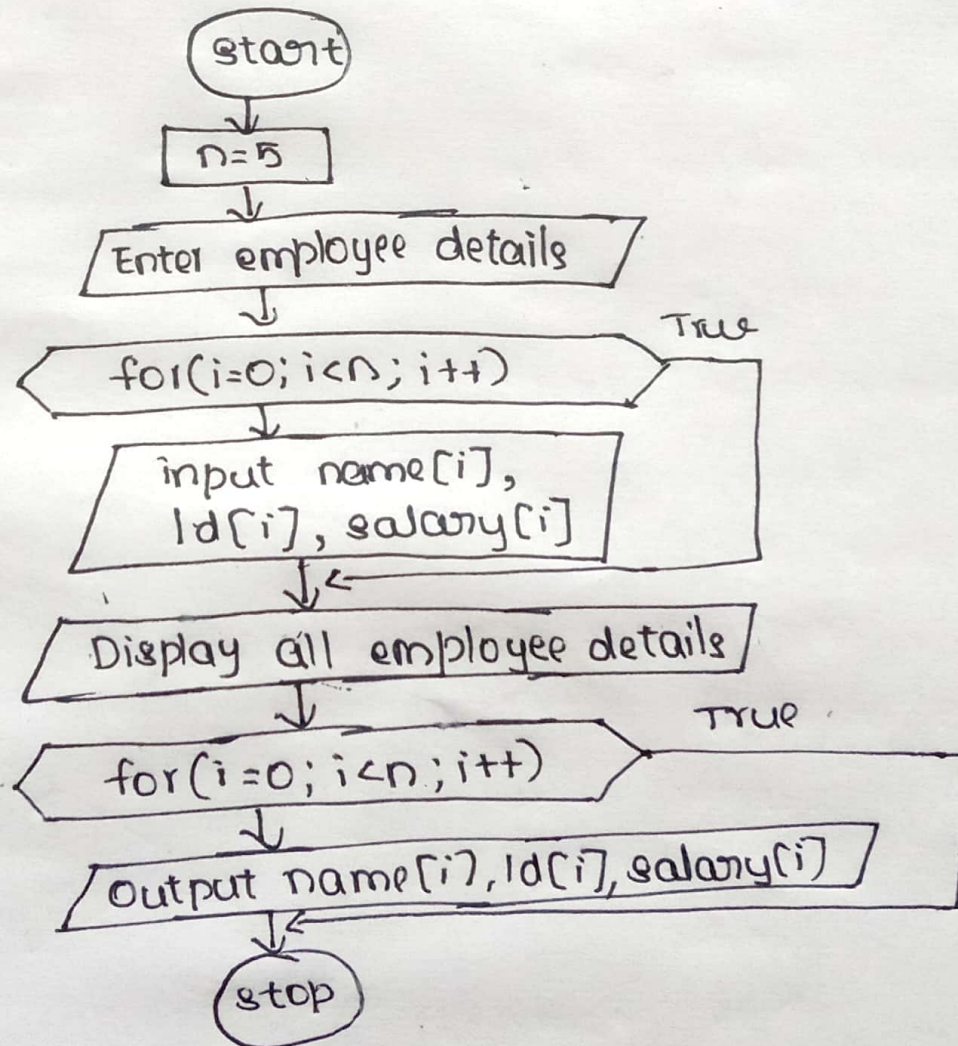 start
n=5
Enter employee details
for(i=0; i<n; i++)
True
input name[i],
Id[i], salary[i]
Display all employee details
for(i=0; i<n; i++)
True
output name[i], Id[i], salary[i]
stop